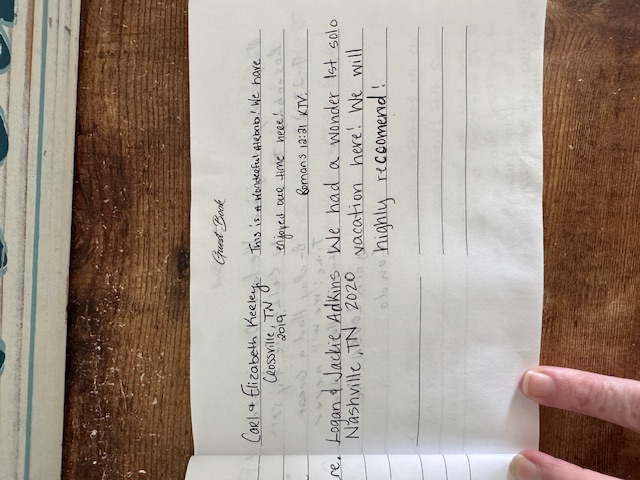 Guest Book
Carl & Elizabeth Keeley This is a wonderful AirBnb! We have
Crossville, TN enjoyed our time here!
2019 Romans 12:21 KJV.
re, Logan & Jackie Adkins We had a wonder 1st solo
Nashville, TN 2020 vacation here! We will
highly reccomend!